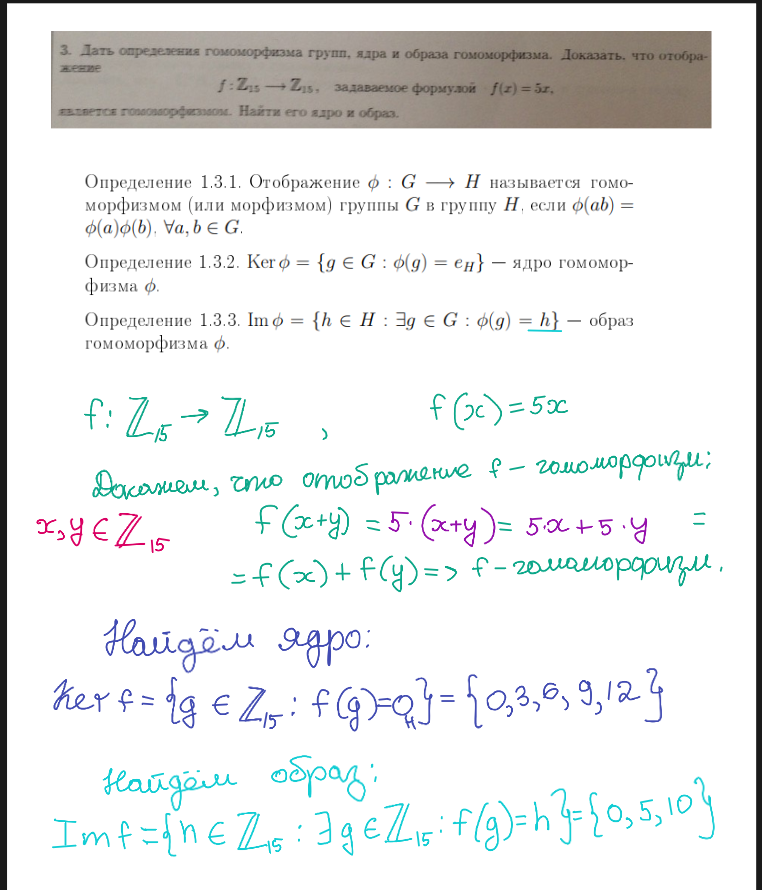 3. Дать определения гомоморфизма групп, ядра и образа гомоморфизма. Доказать, что отобра-
жение
f : ℤ₁₅ ⟶ ℤ₁₅, задаваемое формулой f(x) = 5x,
является гомоморфизмом. Найти его ядро и образ.
Определение 1.3.1. Отображение ϕ : G ⟶ H называется гомо-
морфизмом (или морфизмом) группы G в группу H, если ϕ(ab) =
ϕ(a)ϕ(b), ∀a, b ∈ G.
Определение 1.3.2. Ker ϕ = {g ∈ G : ϕ(g) = e_H} — ядро гомомор-
физма ϕ.
Определение 1.3.3. Im ϕ = {h ∈ H : ∃g ∈ G : ϕ(g) = h} — образ
гомоморфизма ϕ.
f: ℤ₁₅ → ℤ₁₅ , f(x) = 5x
Докажем, что отображение f – гомоморфизм:
x, y ∈ ℤ₁₅ f(x+y) = 5·(x+y) = 5·x + 5·y =
= f(x) + f(y) => f – гомоморфизм.
Найдём ядро:
Ker f = {g ∈ ℤ₁₅ : f(g)=0_H} = {0, 3, 6, 9, 12}
Найдём образ:
Im f = {h ∈ ℤ₁₅ : ∃ g ∈ ℤ₁₅ : f(g) = h} = {0, 5, 10}